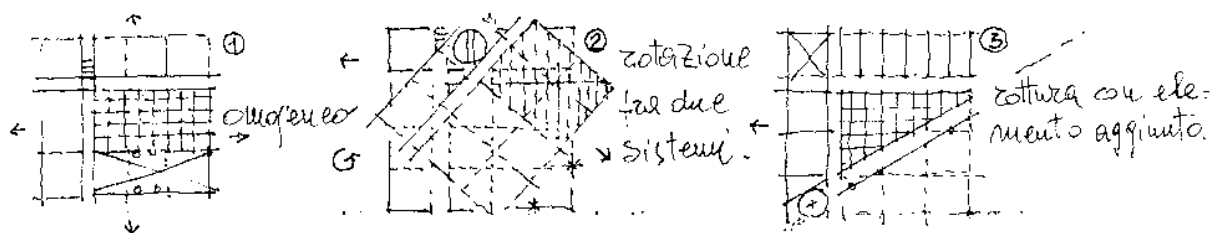 ①
omogeneo
②
rotazione
fra due
sistemi.
③
rottura con ele-
mento aggiunto.